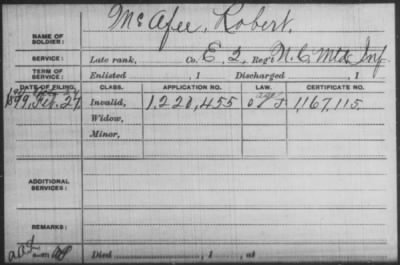 McAfee, Robert.
NAME OF SOLDIER:
SERVICE: Late rank, Co. E. 2, Reg't N. C. Mtd Inf.
TERM OF SERVICE: Enlisted , 1 Discharged , 1
DATE OF FILING. CLASS. APPLICATION NO. LAW. CERTIFICATE NO.
1899, Feb. 27. Invalid, 1,220,455 1,167,115.
Widow,
Minor,
ADDITIONAL SERVICES:
REMARKS:
Died , 1 , at